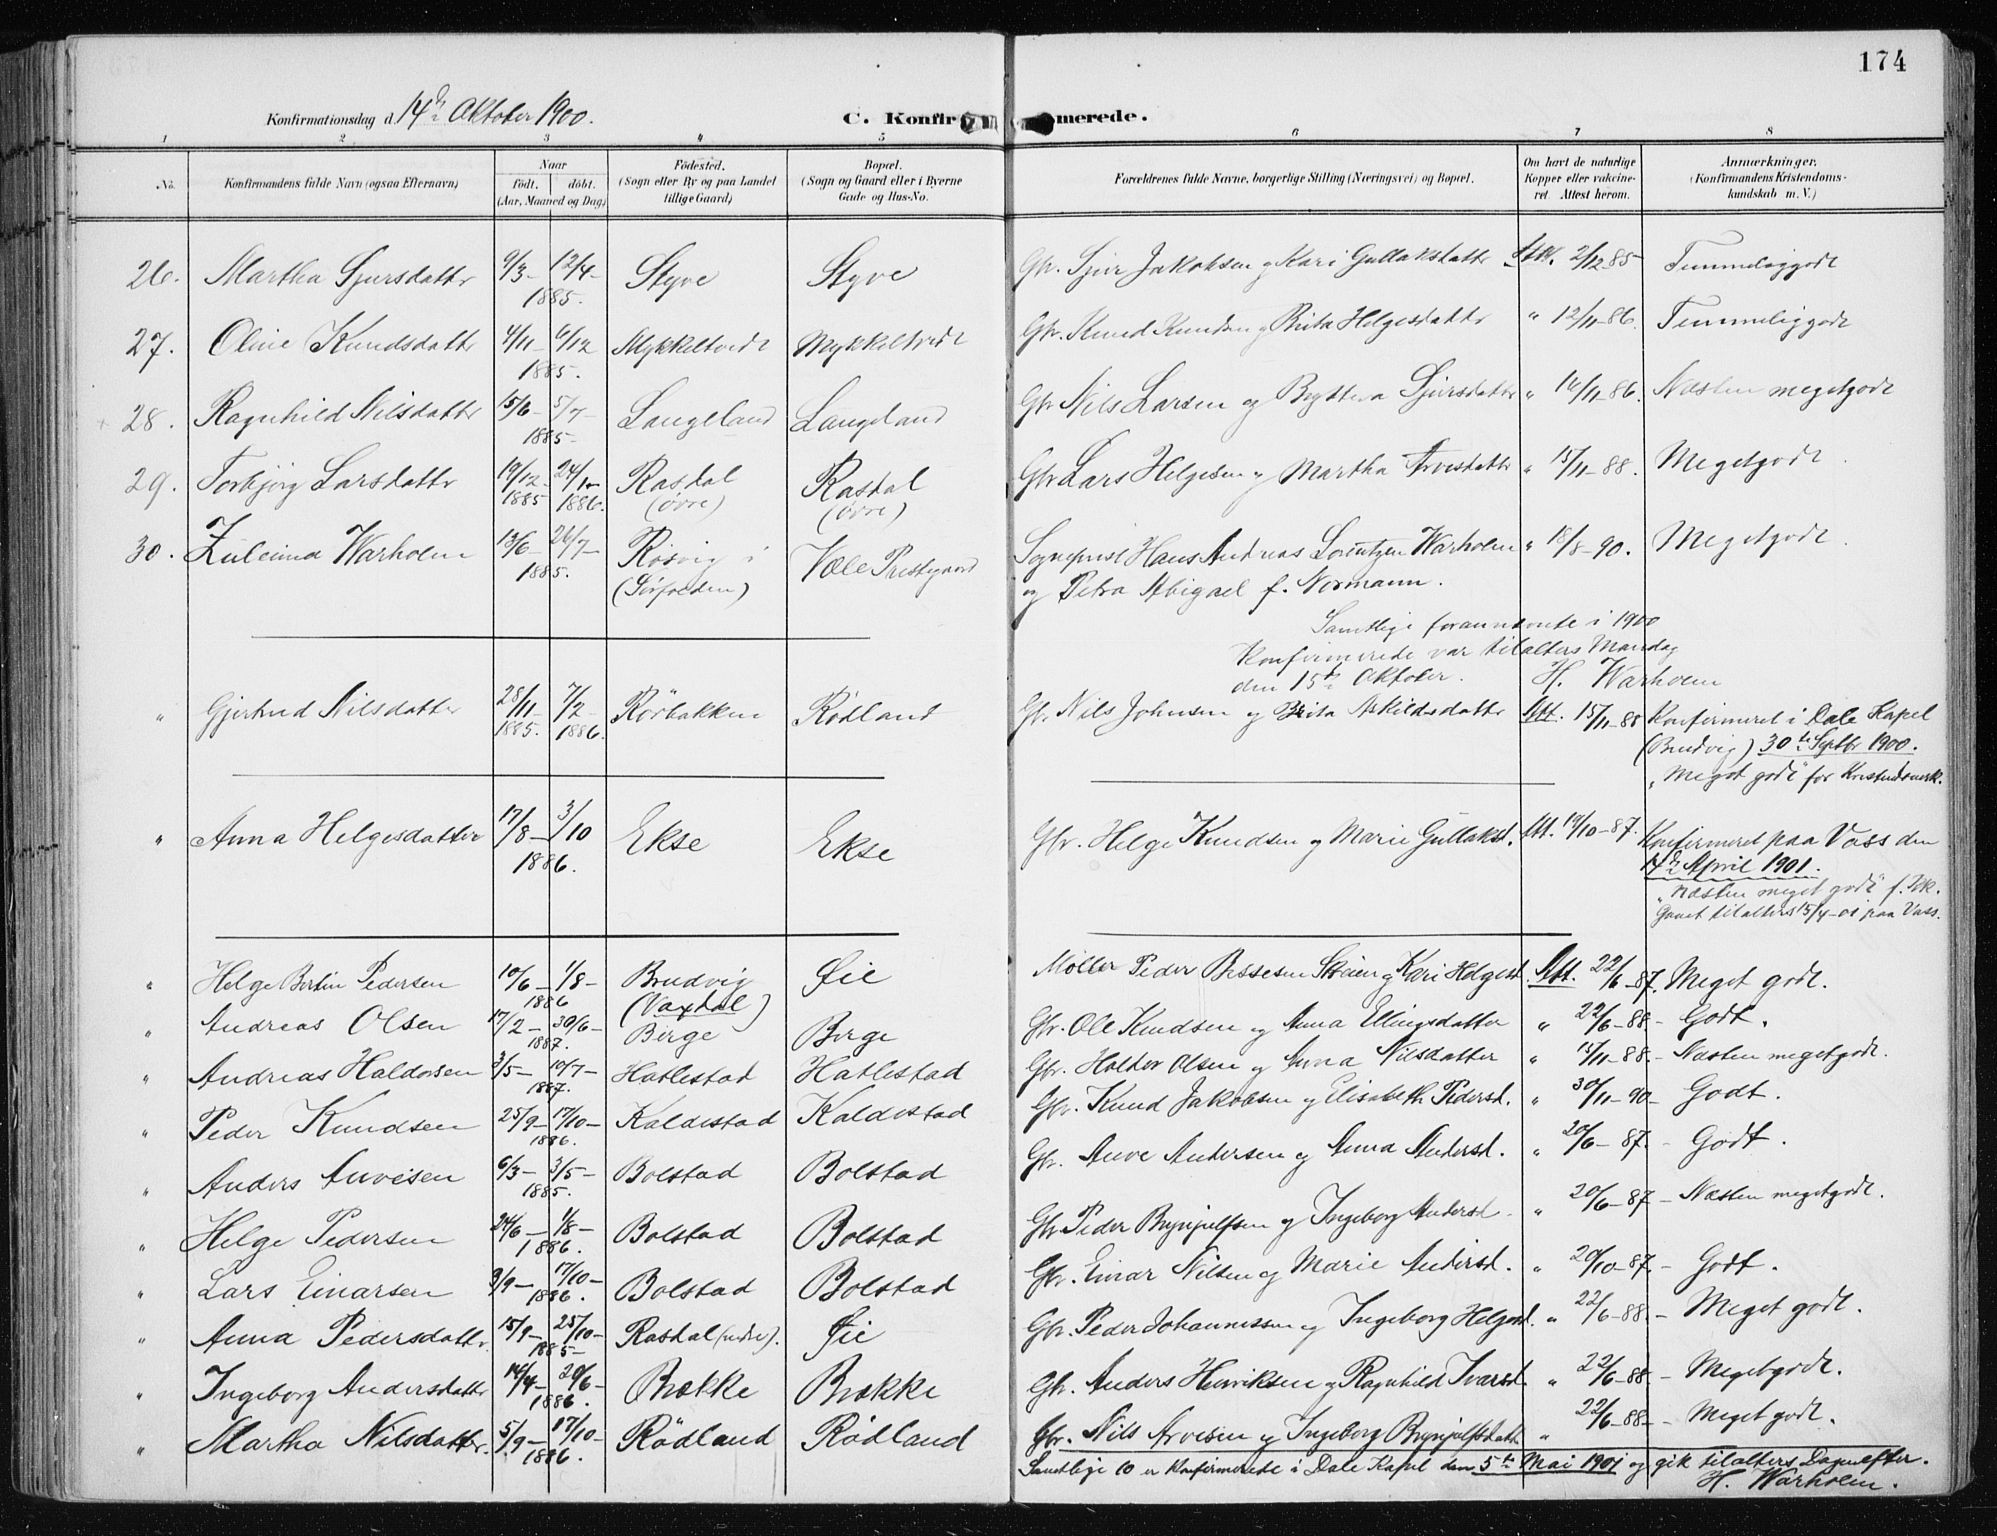 174
Konfirmationsdag d. 14de Oktober 1900.
C. Konfirmerede.
1 2 3 4 5 6 7 8
No.
Konfirmandens fulde Navn (ogsaa Efternavn)
Naar
födt. döbt.
(Aar, Maaned og Dag)
Födested.
(Sogn eller By og paa Landet
tillige Gaard)
Bopæl.
(Sogn og Gaard eller i Byerne
Gade og Hus-No.
Forældrenes fulde Navne, borgerlige Stilling (Næringsvei) og Bopæl.
Om havt de naturlige
Kopper eller vakcine-
ret. Attest herom.
Anmærkninger.
(Konfirmandens Kristendoms-
kundskab m. V.)
26. Martha Sjursdatter 9/3- 12/4- 1885. Styve Styve Gbr. Sjur Jakobsen og Kari Gullaksdatter Att. 2/12 85 Temmeliggodt
27. Oline Knudsdatter 4/11- 6/12 1885. Mykkeltvedt Mykkeltvedt Gbr. Knud Knudsen og Brita Helgesdatter " 12/11-86. Temmeliggodt
28. Ragnhild Nilsdatter 15/6- 5/7- 1885- Langeland Langeland Gbr Nils Larsen og Brytteva Sjursdatter " 14/11-86. Næsten megetgodt
29. Torbjörg Larsdatter 19/12 1885 24/1- 1886. Rasdal (övre) Rasdal (övre) Gbr Lars Helgesen og Martha Arvesdatter " 15/11-88. Megetgodt
30. Zuleima Warholm 13/6- 26/7- 1885. Rösvig i (Sörfolden) Vœle Prestegaard Sogneprest Hans Andreas Lorentzen Warholm " 18/8-90. Megetgodt.
og Petra Abigael f. Normann.
Samtlige forannævnte i 1900
Konfirmerede var tilalters Mandag
den 15de Oktober. H. Warholm
" Gjertrud Nilsdatter 28/11- 1885. 7/2- 1886. Rörbakken Rödland Gbr. Nils Johnsen og Brita Askildsdatter Att. 15/11-88 Konfirmeret i Dale Kapel
(Bruvig) 30te Septbr 1900.
"Meget godt" for Kristendomsk.
" Anna Helgesdatter 17/8- 3/10 1886. Ekse Ekse Gbr. Helge Knudsen og Marie Gullaksd. Att. 19/10-87. Konfirmeret paa Voss den
14de April 1901.
"Næsten meget godt" f. Kdk.
Gaaet tilalters 15/4-01 paa Voss.
" Helge Bertin Pedersen 10/6- 1/8- 1886 Brudvig (Vaxdal) Øie Møller Peder Bessesen Skeien og Kari Helgesd. Att. 22/6-87. Meget godt.
" Andreas Olsen 17/2- 30/6- 1887. Birge Birge Gbr. Ole Knudsen og Anna Ellingsdatter " 22/6-88- Godt.
" Andreas Haldorsen 3/5- 10/7- 1887. Hatlestad Hatlestad Gbr. Haldor Olsen og Anna Nilsdatter " 15/11-88- Næsten megetgodt.
" Peder Knudsen 25/9- 17/10- 1886. Kaldestad Kaldestad Gbr. Knud Jakobsen og Elisabeth Pedersd. " 30/11-90- Godt.
" Anders Anvesen 6/3- 3/5- 1885. Bolstad Bolstad Gbr. Anve Andersen og Anna Andersd. " 20/6-87- Godt.
" Helge Pedersen 24/6- 1/8- 1886. Bolstad Bolstad Gbr Peder Brynjulfsen og Ingeborg Andersd. " 20/6-87- Næsten megetgodt.
" Lars Einarsen 3/9- 17/10- 1886. Bolstad Bolstad Gbr. Einar Nilsen og Marie Andersd. " 20/10-87- Godt.
" Anna Pedersdatter 15/9- 25/10- 1885- Rasdal (nedre). Øie Gbr. Peder Johannessen og Ingeborg Helgesd. " 22/6-88- Meget godt.
" Ingeborg Andersdatter 14/4- 20/6- 1886. Brække Brække Gbr. Anders Henriksen og Ragnhild Ivarsd. " 22/6-88- Megetgodt.
" Martha Nilsdatter. 5/9- 17/10- 1886. Rödland Rödland Gbr. Nils Arvesen og Ingeborg Brynjulfsdatter " 22/6-88- Meget godt.
Samtlige 10 er konfirmerede i Dale Kapel den 5te Mai 1901 og gik tilalters Dagen efter.
H. Warholm.